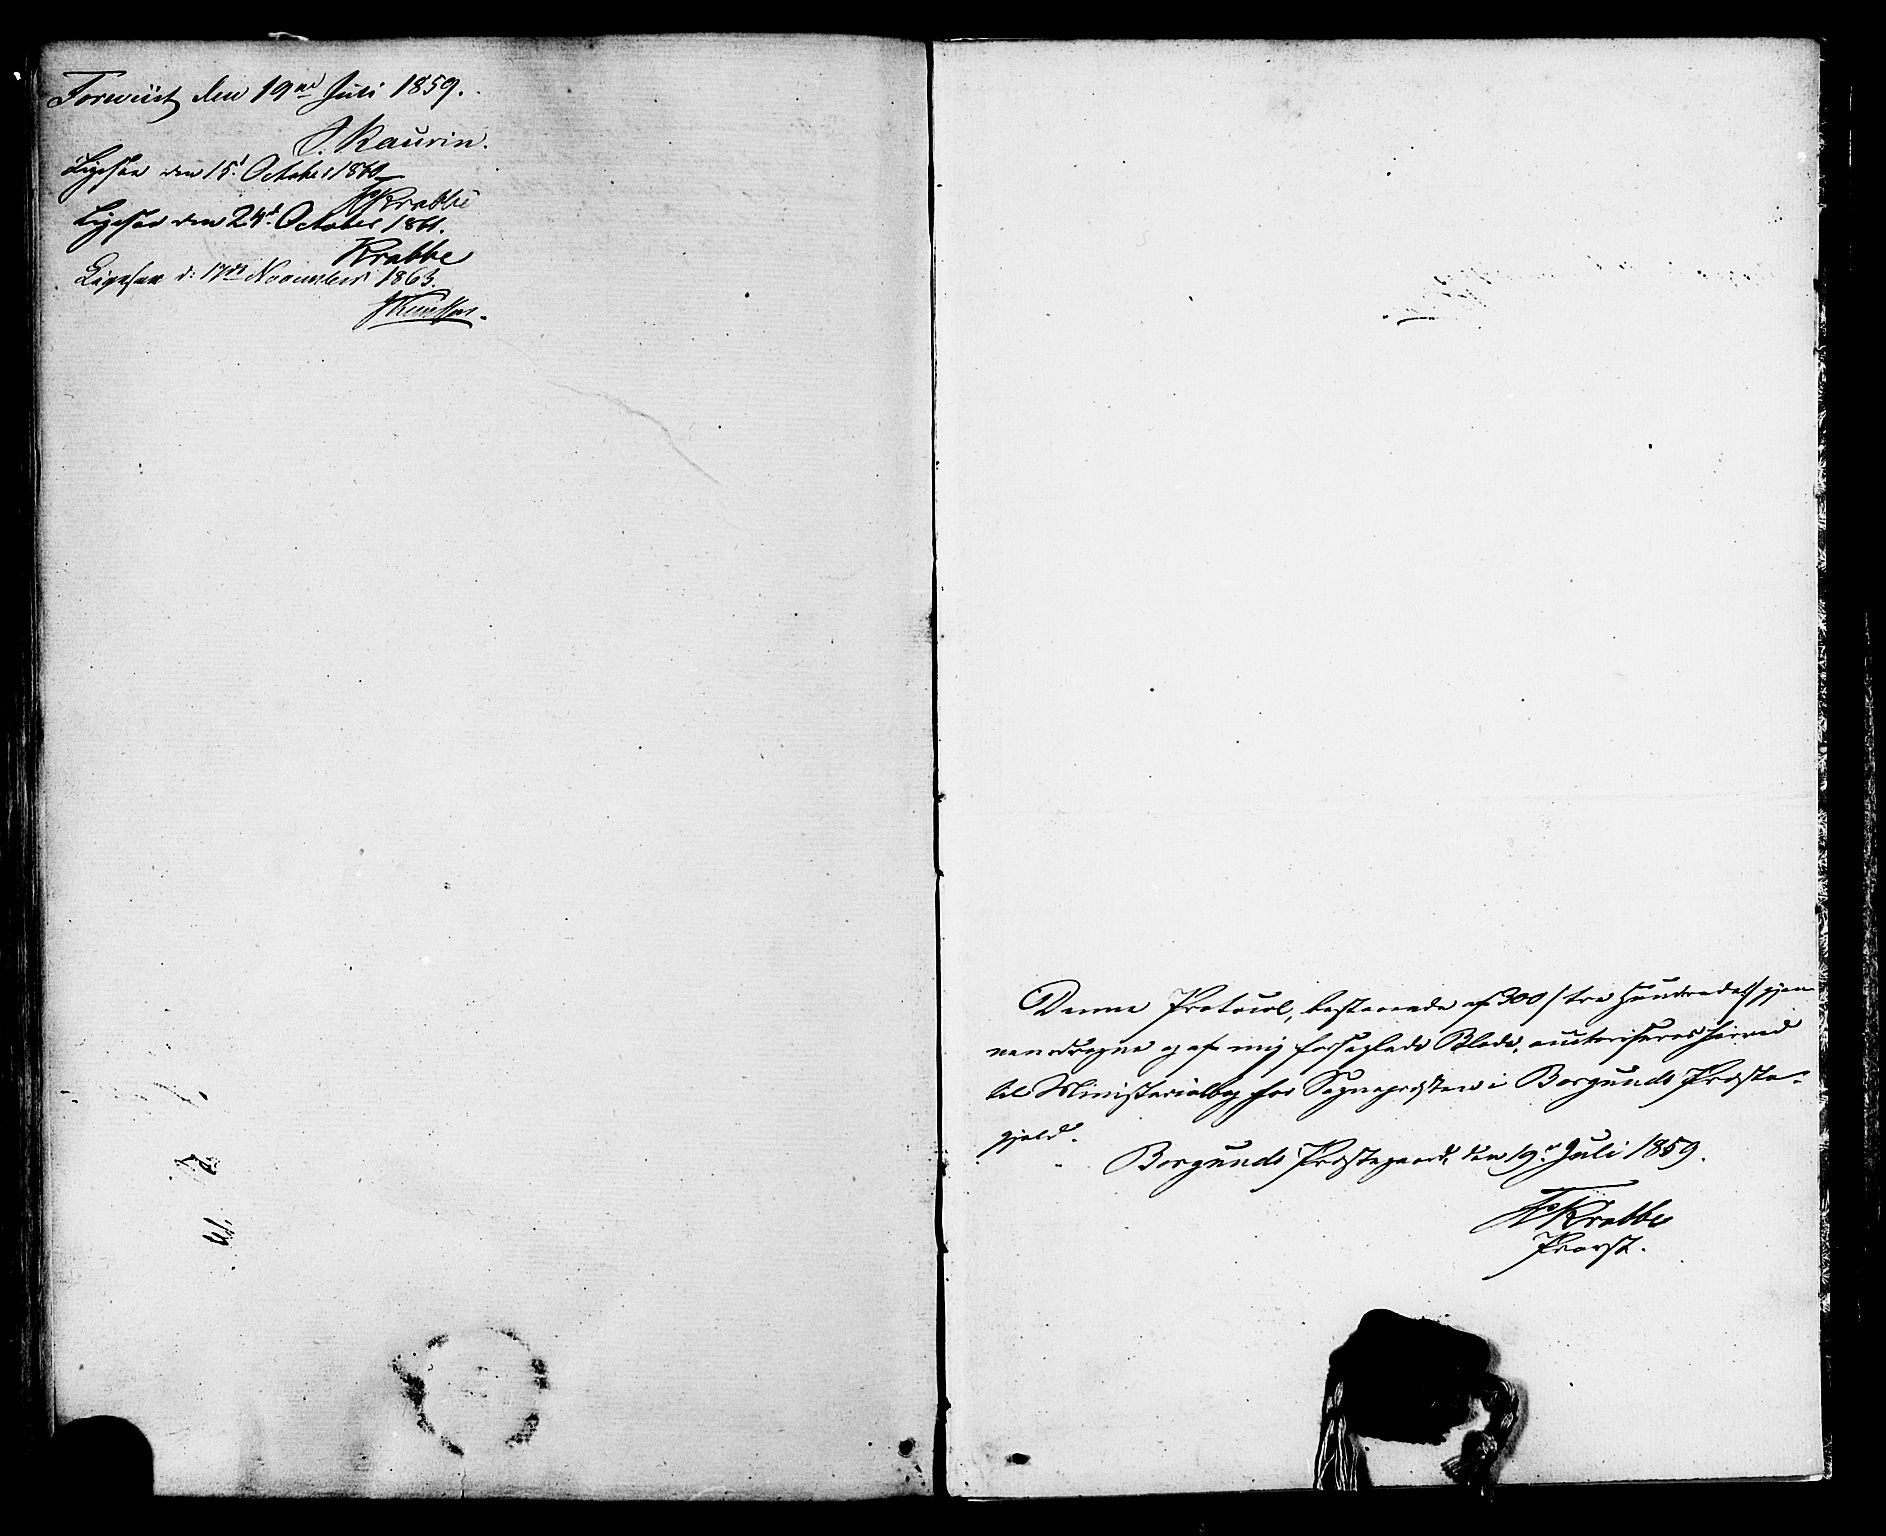 Foreviist den 19de Juli 1859.
J. Kaurin.
Ligesaa den 15d October 1860
FKrabbe
Ligesaa den 24d October 1861.
Krabbe
Ligesaa d: 17de November 1863.
Denne Protocol, bestaaende af 300 /tre hundrede/ gjen
nemdragne og af mig forseglede Blade, autoriseres herved
til Ministerialbog for Sognepræsten i Borgunds Præste-
gjeld.
Borgunds Præstegaard, den 19d Juli 1859.
FKrabbe
Provst.